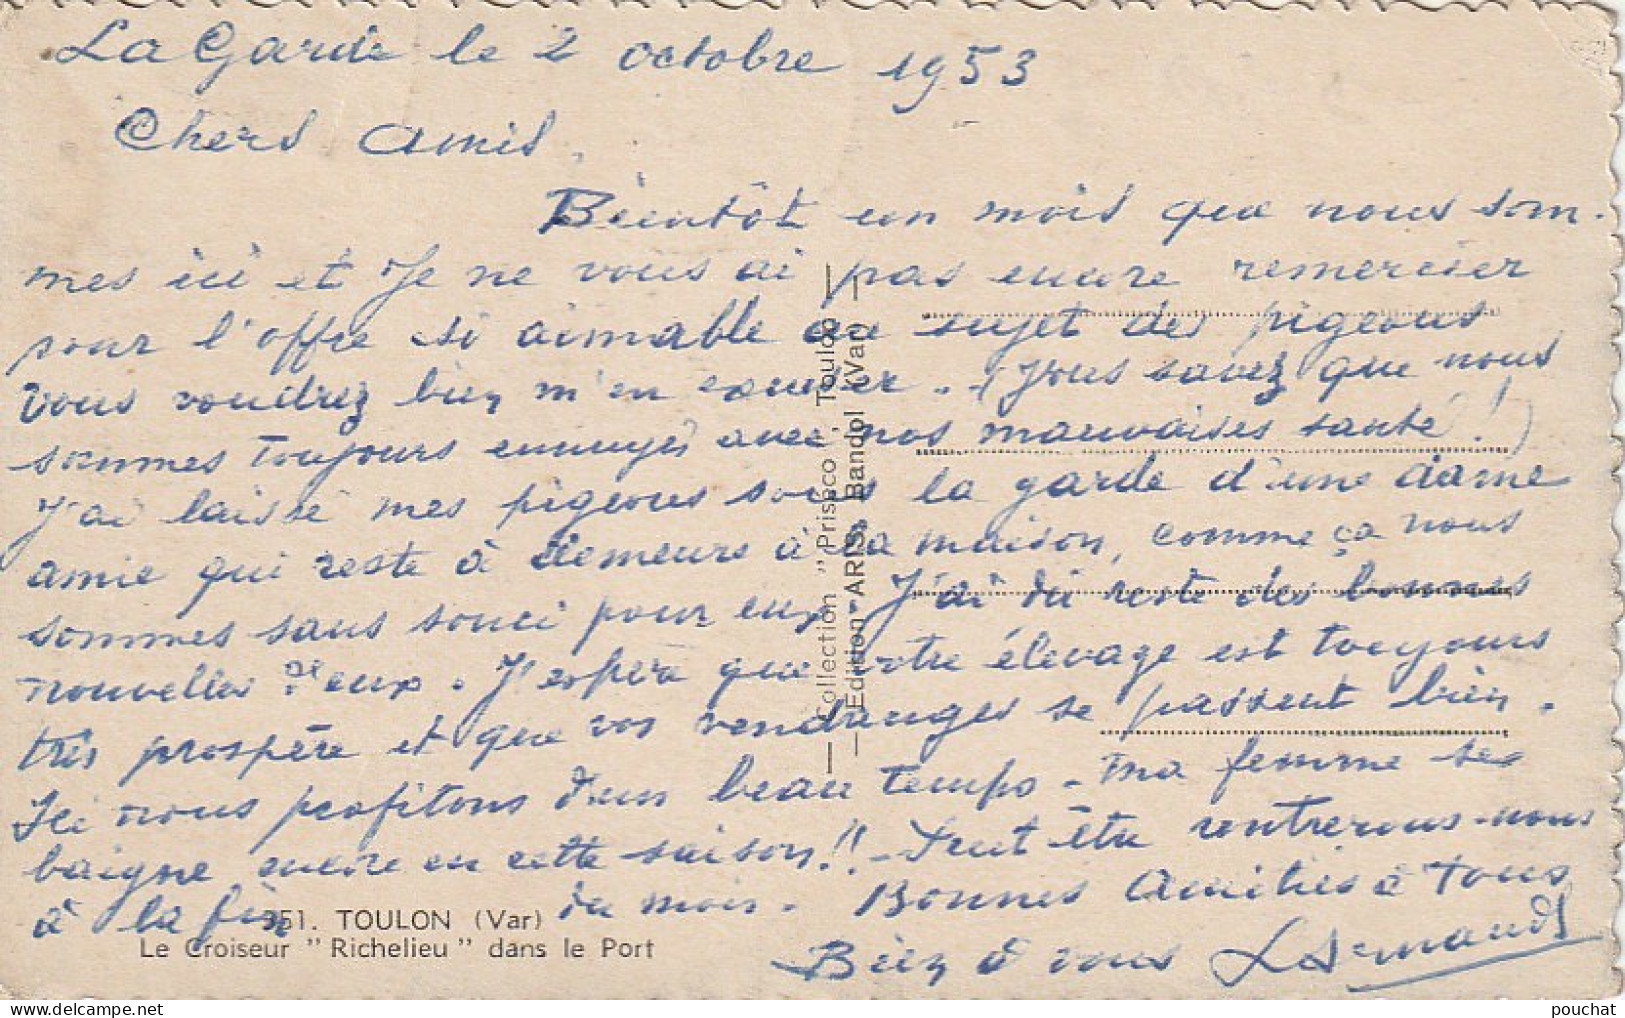 La Garde le 2 octobre 1953
Chers Amis,
Bientôt un mois que nous som-
mes ici et je ne vous ai pas encore remercier
pour l'offre si aimable au sujet des pigeons
vous voudrez bien m'en excuser. (Vous savez que nous
sommes toujours ennuyés avec nos mauvaises santé!)
J'ai laissé mes pigeons sous la garde d'une dame
amie qui reste à demeure à la maison, comme ça nous
sommes sans souci pour eux. J'ai du reste des bonnes
nouvelles d'eux. J'espère que votre élevage est toujours
très prospère et que vos vendanges se passent bien.
Ici nous profitons d'un beau temps - ma femme se
baigne encore en cette saison!! - Peut être rentrerons-nous
à la fin du mois. Bonnes Amitiés à tous
Bien à vous LArmand
351. TOULON (Var)
Le Croiseur "Richelieu" dans le Port
Collection "Priseco", Toulon
Edition ARIS, Bandol (Var)
pouchat